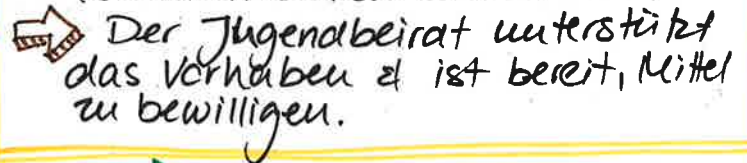 Der Jugendbeirat unterstützt
das Vorhaben & ist bereit, Mittel
zu bewilligen.